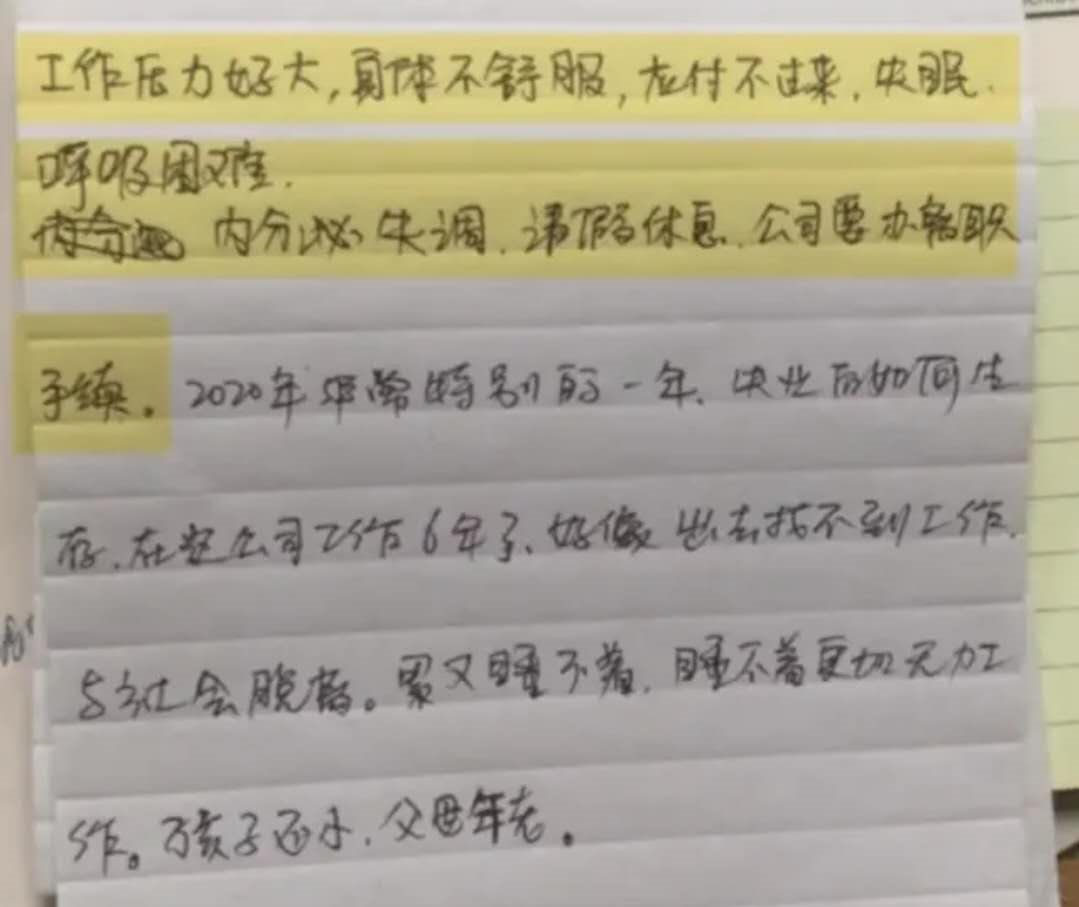 工作压力好大,身体不舒服,应付不过来,失眠.
呼吸困难.
内分泌失调.请假休息.公司要办离职
手续。2020年非常特别的一年、失业后如何生
存.在这公司工作6年了、好像出去找不到工作.
与社会脱离。累又睡不着.睡不着更加无力工
作。孩子还小.父母年老。